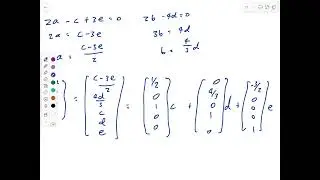 2a - c + 3e = 0   3b - 4d = 0
2a = c - 3e   3b = 4d
a = c - 3e / 2   b = 4/3 d
= [ c - 3e / 2, 4d / 3, c, d, e ] = [ 1/2, 0, 1, 0, 0 ] c + [ 0, 4/3, 0, 1, 0 ] d + [ -3/2, 0, 0, 0, 1 ] e